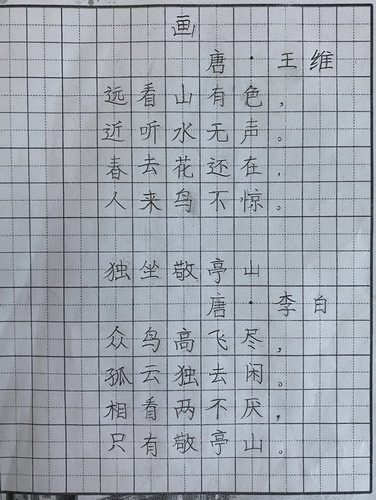 画
唐·王维
远看山有色，
近听水无声。
春去花还在，
人来鸟不惊。
独坐敬亭山
唐·李白
众鸟高飞尽，
孤云独去闲。
相看两不厌，
只有敬亭山。